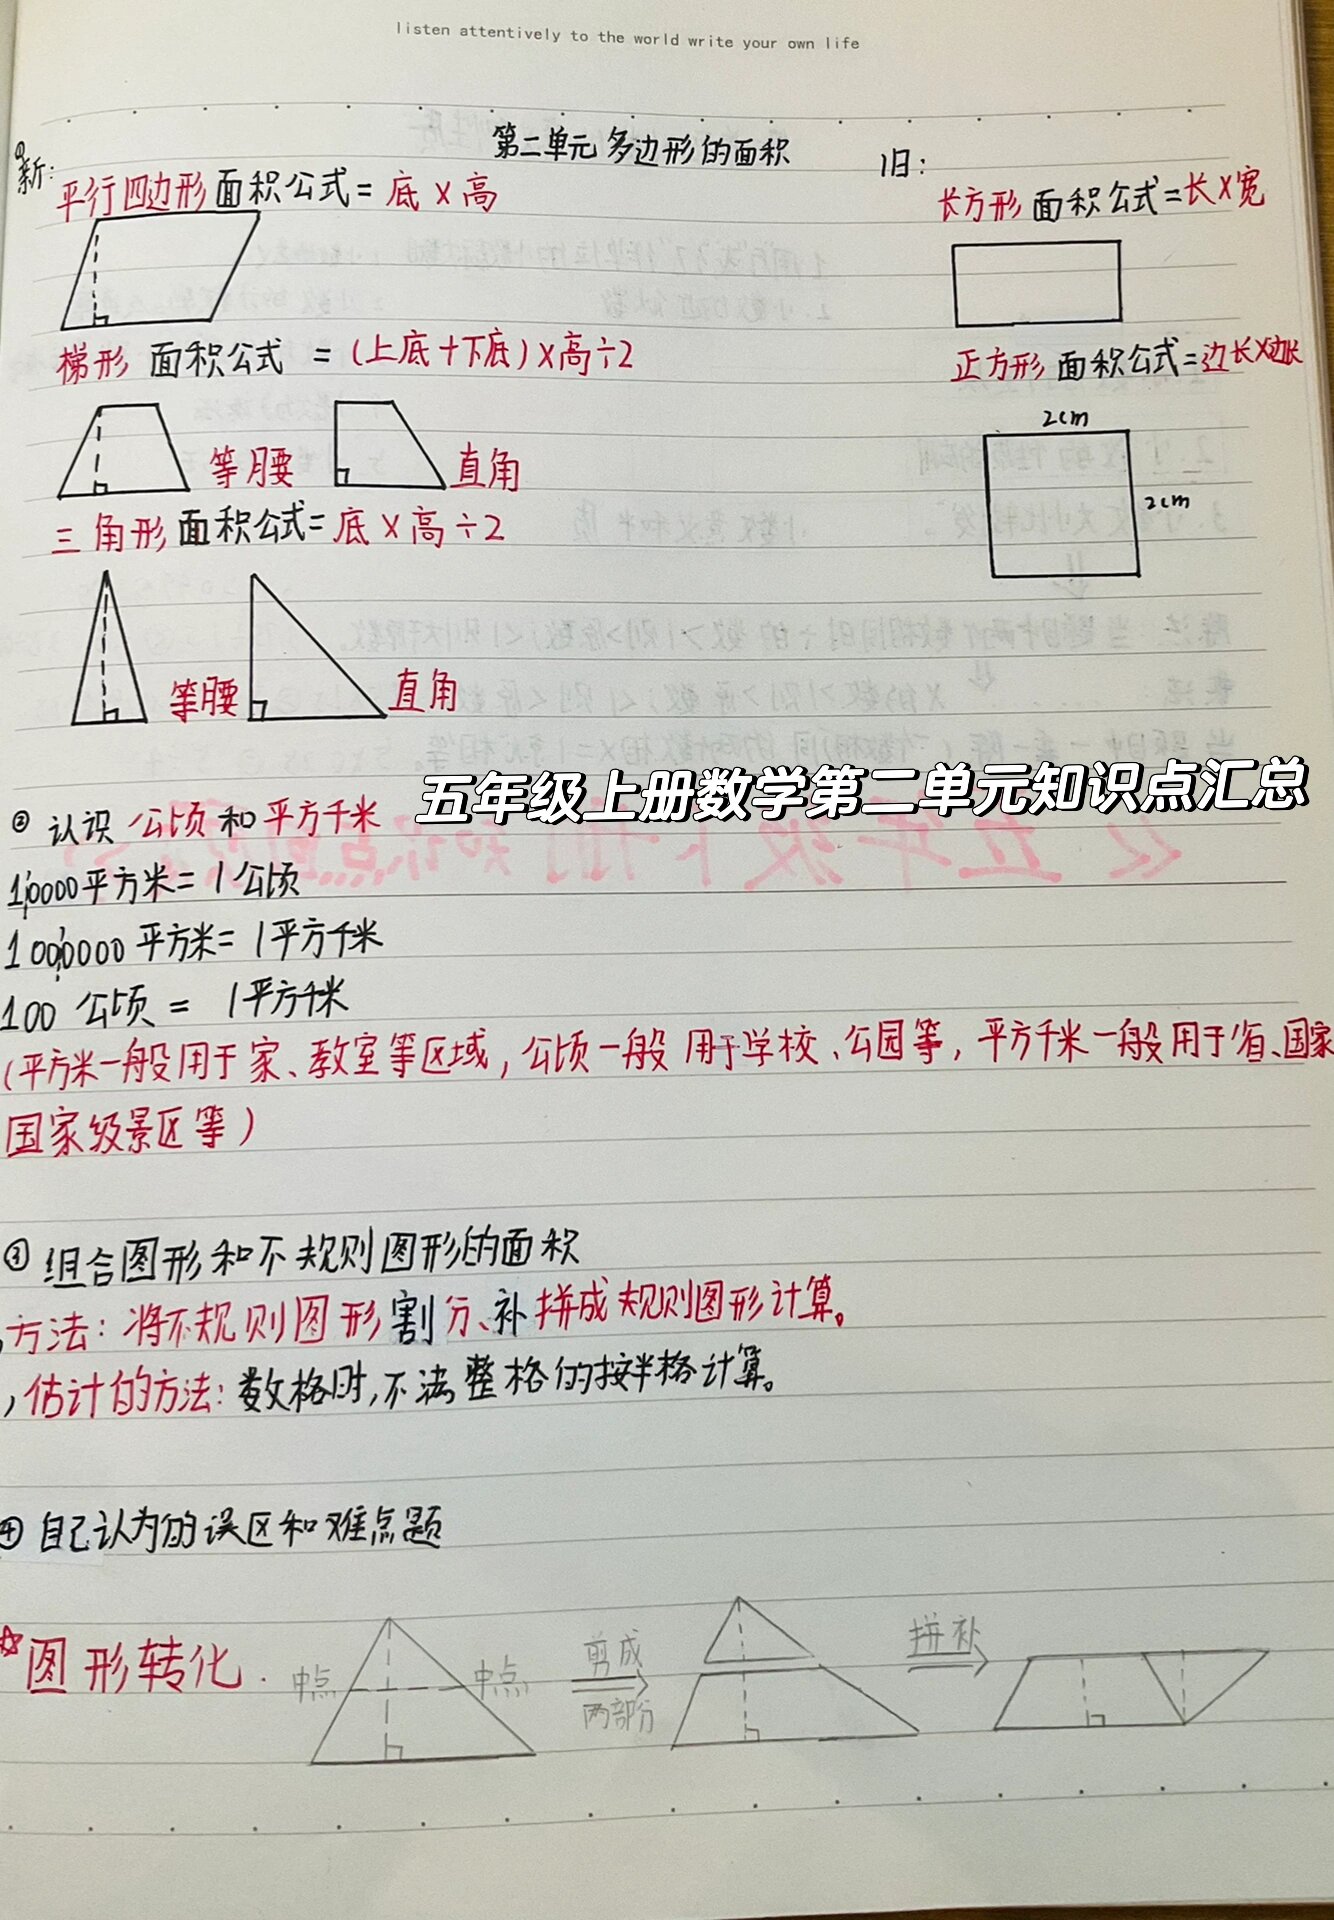 listen attentively to the world write your own life
第二单元 多边形的面积
① 新: 旧:
平行四边形面积公式=底×高
长方形面积公式=长×宽
梯形面积公式=(上底+下底)×高÷2
正方形面积公式=边长×边长
等腰 直角
2cm
2cm
三角形面积公式=底×高÷2
等腰 直角
五年级上册数学第二单元知识点汇总
② 认识公顷和平方千米
10000平方米=1公顷
1000000平方米=1平方千米
100公顷=1平方千米
(平方米一般用于家、教室等区域,公顷一般用于学校、公园等,平方千米一般用于省、国家
国家级景区等)
③ 组合图形和不规则图形的面积
方法:将不规则图形割分、补拼成规则图形计算。
估计的方法:数格时,不满整格的按半格计算。
④ 自己认为的误区和难点题
☆图形转化.
中点 中点
剪成
两部分
拼补